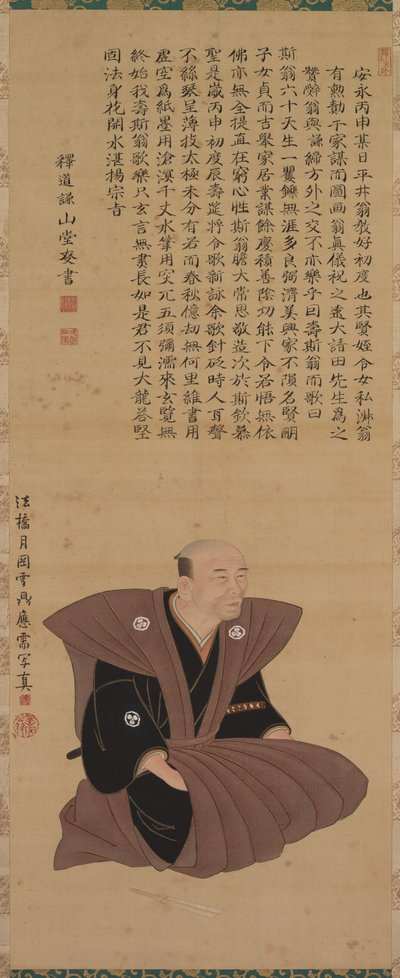 安永丙申某日平井翁敎好初度也其賢姪令女私淋翁
有勲勤于家謀而圖画翁真儀祝之遙大請田先生爲之
贊辭翁與謙締方外之交不亦樂乎曰壽斯翁而歌曰
斯翁六十天生一矍鑠無涯多良弼濟美興家不隕名賢嗣
子女貞而吉擧家居業謀餘慶積善陰功能下令若悟無依
佛亦無全提直在窮心性斯翁膽大常思敬造次於斯欽慕
聖是歳丙申初度辰壽筵將令歌新詠余歌針砭時人耳聲
不絲琴呈薄技太極未分有若而春秋億劫無何里維書用
虚空為紙墨用滄溟千丈水筆用突兀五須彌濡來玄覽無
終始我壽斯翁歌樂只玄言無盡長如是君不見大龍答堅
固法身花開水湛揚宗旨
釋道謙山堂奏書
法橋月岡雪鼎應需写真